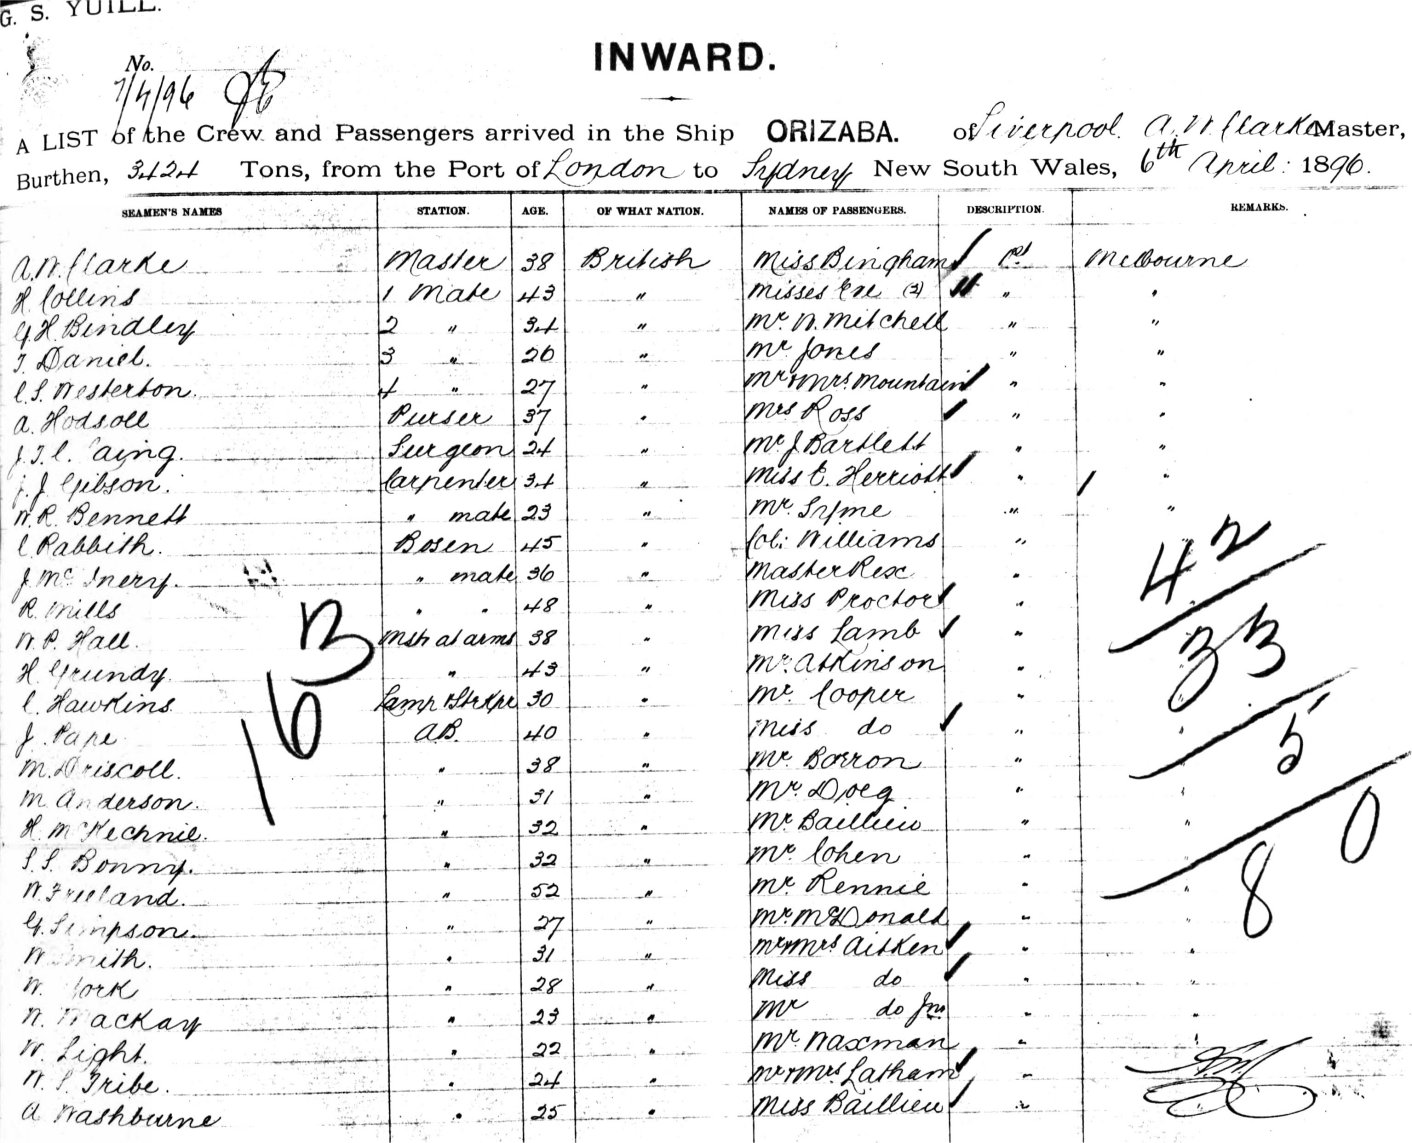 G. S. YUILL.
INWARD.
No.
7/4/96
A LIST of the Crew and Passengers arrived in the Ship ORIZABA. of Liverpool. A. W. Clarke Master,
Burthen, 3424 Tons, from the Port of London to Sydney New South Wales, 6th April: 1896.
SEAMEN'S NAMES STATION. AGE. OF WHAT NATION. NAMES OF PASSENGERS. DESCRIPTION. REMARKS.
A. W. Clarke Master 38 British Miss Bingham Melbourne
H. Collins 1 Mate 43 " Misses Eve (2) " "
G. H. Bindley 2 " 34 " Mr. W. Mitchell " "
T. Daniel. 3 " 26 " Mr Jones " "
C. S. Westerton. 4 " 27 " Mr & Mrs. Mountain " "
A. Hodsoll Purser 37 " Mrs Ross " "
J. T. C. Surgeon 24 " Mr J Bartlett " "
J. Gibson. Carpenter 34 " Miss C. Herriott " "
W. R. Bennett " mate 23 " Mr. Syme " "
C Rabbith. Bosen 45 " Col: Williams "
J. Mc Inery. " mate 36 " Master Rex "
R. Mills " " 48 " Miss Proctor "
W. P. Hall. Mstr at arms 38 " Miss Lamb "
H. Grundy. " 43 " Mr. Atkinson "
C. Hawkins Lamp & Strkpr 30 " Mr. Cooper "
J. Pape A.B. 40 " Miss do " "
M. Driscoll. " 38 " Mr. Barron "
M. Anderson. " 31 " Mr. Doeg " "
H. McKechnie. " 32 " Mr. Baillieu " "
S. S. Bonny. " 32 " Mr. Cohen " "
W. Freeland. " 52 " Mr. Rennie " "
G. Simpson. " 27 " Mr. McDonald " "
W. Smith. " 31 " Mr & Mrs Aitken " "
W. York " 28 " Miss do " "
W. Mackay " 23 " Mr do Jnr " "
W. Light. " 22 " Mr. Waxman " "
W. S. Tribe. " 24 " Mr & Mrs Latham "
A Washburne " 25 " Miss Baillieu "
163
42
33
5
80